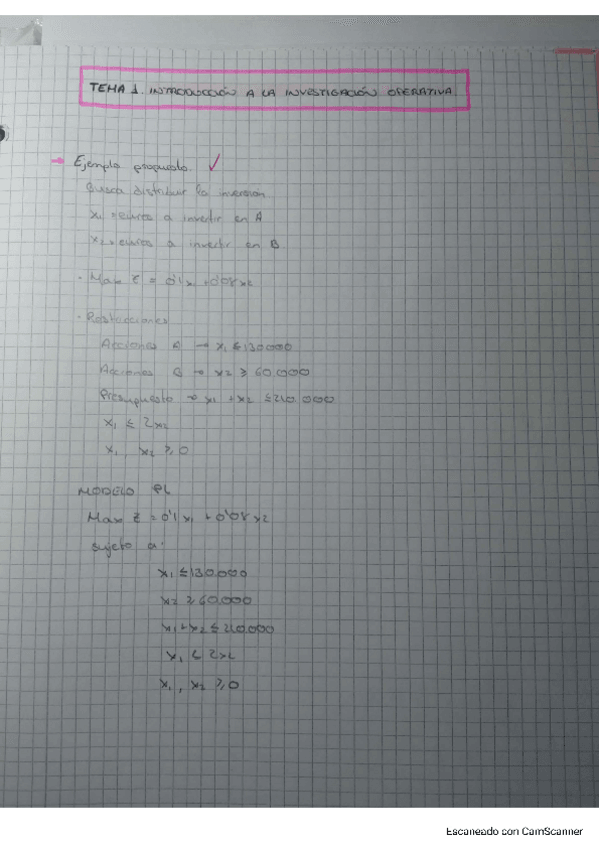 TEMA 1. INTRODUCCIÓN A LA INVESTIGACIÓN OPERATIVA
→ Ejemplo propuesto ✓
Busca distribuir la inversión
x₁ = euros a invertir en A
x₂ = euros a invertir en B
· Max Z = 0'1x₁ + 0'08x₂
· Restricciones
Acciones A → x₁ ≤ 130.000
Acciones B → x₂ ≥ 60.000
Presupuesto → x₁ + x₂ ≤ 210.000
x₁ ≤ 2x₂
x₁, x₂ ≥ 0
MODELO PL
Max Z = 0'1x₁ + 0'08x₂
sujeto a:
x₁ ≤ 130.000
x₂ ≥ 60.000
x₁ + x₂ ≤ 210.000
x₁ ≤ 2x₂
x₁, x₂ ≥ 0
Escaneado con CamScanner